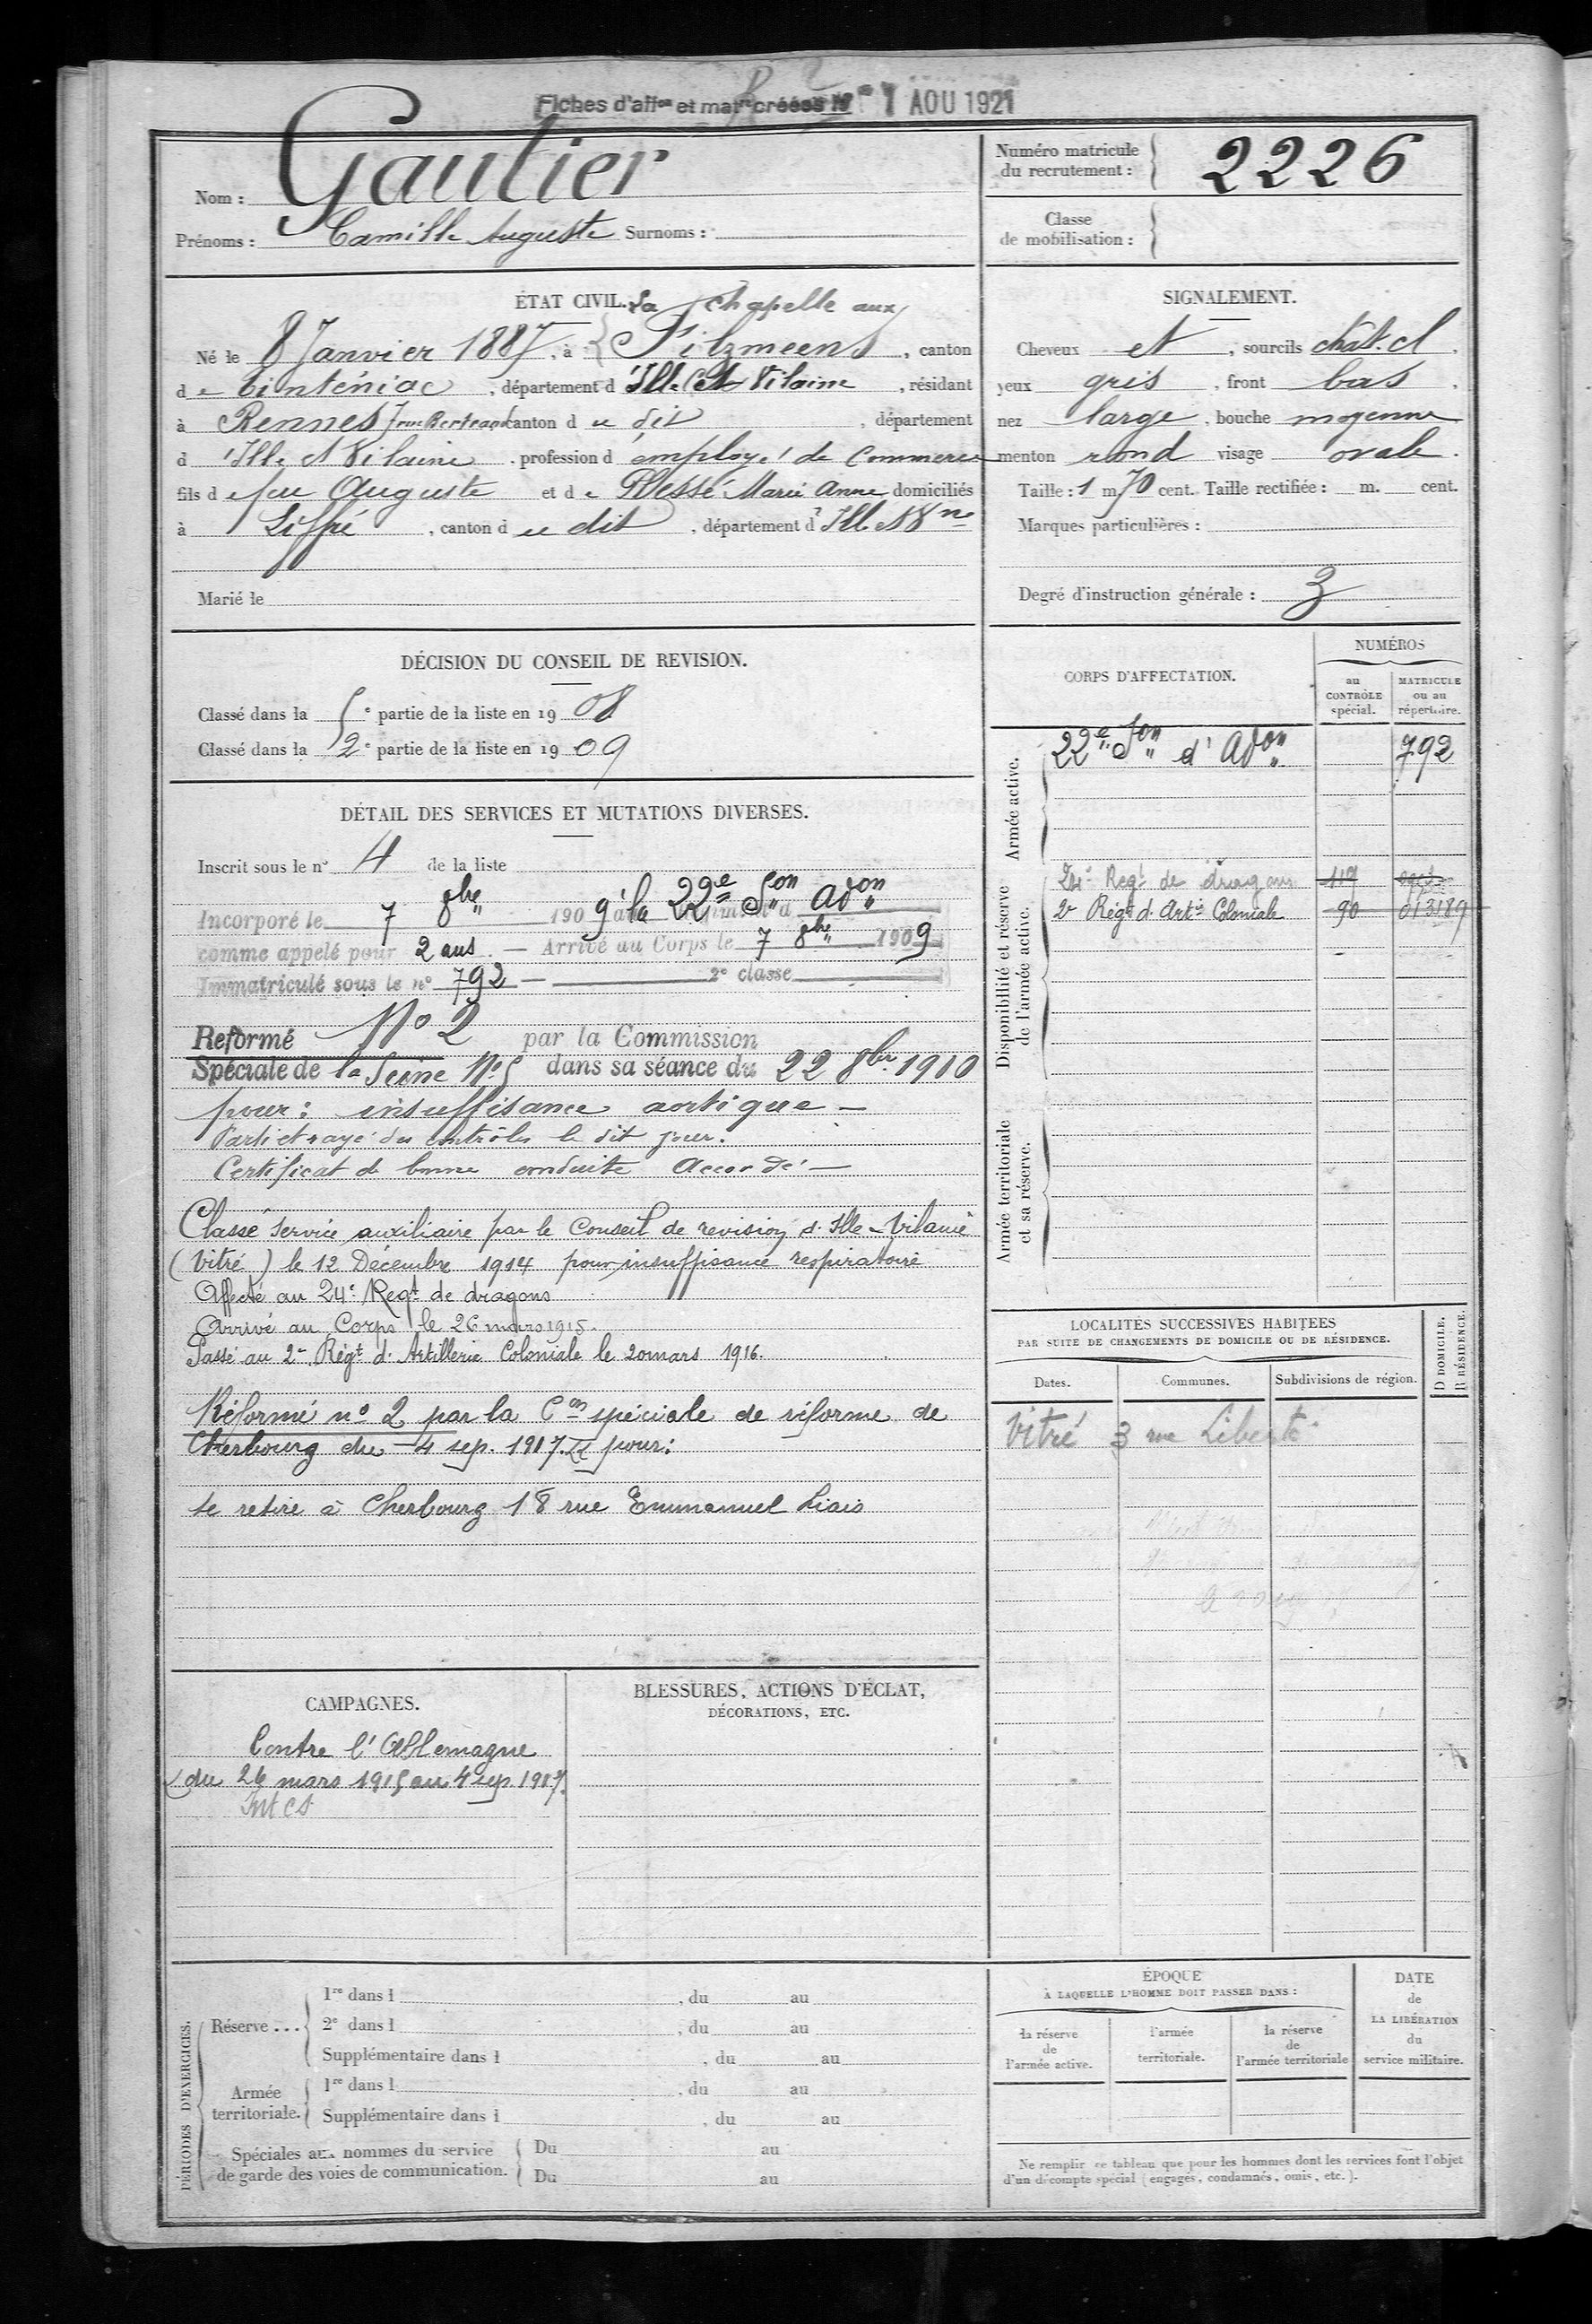 Fiches d'affon et matre créées le 1 AOU 1921
Nom : Gautier
Prénoms : Camille Auguste Surnoms :
Numéro matricule du recrutement : 2226
Classe de mobilisation :
ÉTAT CIVIL.
La Chapelle aux
Né le 8 Janvier 1887, à Filzmeens, canton
de Tinténiac, département d'Ille et Vilaine, résidant
à Rennes rue Bertrand canton du dit, département
d'Ille et Vilaine, profession d'employé de Commerce
fils de feu Auguste et de Plessé Marie Anne domiciliés
à Liffré, canton du dit, département d'Ille et Vne
Marié le
SIGNALEMENT.
Cheveux et, sourcils chât. cl.
yeux gris, front bas,
nez large, bouche moyenne
menton rond visage ovale.
Taille : 1 m 70 cent. Taille rectifiée : m. cent.
Marques particulières :
Degré d'instruction générale : 3
DÉCISION DU CONSEIL DE REVISION.
Classé dans la 5e partie de la liste en 1908
Classé dans la 2e partie de la liste en 1909
DÉTAIL DES SERVICES ET MUTATIONS DIVERSES.
Inscrit sous le n° 4 de la liste
Incorporé le 7 8bre 1909 à la 22e Son Adon
comme appelé pour 2 ans. — Arrivé au Corps le 7 8bre 1909
Immatriculé sous le n° 792 — 2e classe
Reformé No 2 par la Commission
Spéciale de la Seine No 5 dans sa séance du 22 8bre 1910
pour : insuffisance aortique —
Parti et rayé des contrôles le dit jour.
Certificat de bonne conduite Accordé —
Classé Service auxiliaire par le Conseil de revision d'Ille-Vilaine
(Vitré) le 12 Décembre 1914 pour insuffisance respiratoire
Affecté au 24e Regt de dragons
Arrivé au Corps le 26 mars 1915.
Passé au 2e Régt d'Artillerie Coloniale le 20 mars 1916.
Réformé n° 2 par la Con spéciale de réforme de
Cherbourg du 4 sep. 1917 pour :
se retire à Cherbourg 18 rue Emmanuel Liais
CORPS D'AFFECTATION.
NUMÉROS
au CONTRÔLE spécial.
MATRICULE ou au répertoire.
Armée active.
22e Son d'Adon 792
Disponibilité et réserve de l'armée active.
24e Regt de dragons 119
2e Régt d'Artie Coloniale 90 013189
Armée territoriale et sa réserve.
LOCALITÉS SUCCESSIVES HABITÉES
PAR SUITE DE CHANGEMENTS DE DOMICILE OU DE RÉSIDENCE.
Dates. Communes. Subdivisions de région.
D DOMICILE.
R RÉSIDENCE.
Vitré 3 rue Liberté
CAMPAGNES.
Contre l'Allemagne
du 26 mars 1915 au 4 sep. 1917.
Int CS
BLESSURES, ACTIONS D'ÉCLAT,
DÉCORATIONS, ETC.
PÉRIODES D'EXERCICES.
Réserve ...
1re dans l , du au
2e dans l , du au
Supplémentaire dans l , du au
Armée territoriale.
1re dans l , du au
Supplémentaire dans l , du au
Spéciales aux hommes du service
de garde des voies de communication.
Du au
Du au
ÉPOQUE
À LAQUELLE L'HOMME DOIT PASSER DANS :
la réserve de l'armée active.
l'armée territoriale.
la réserve de l'armée territoriale
DATE de LA LIBÉRATION du service militaire.
Ne remplir ce tableau que pour les hommes dont les services font l'objet
d'un décompte spécial (engagés, condamnés, omis, etc.).